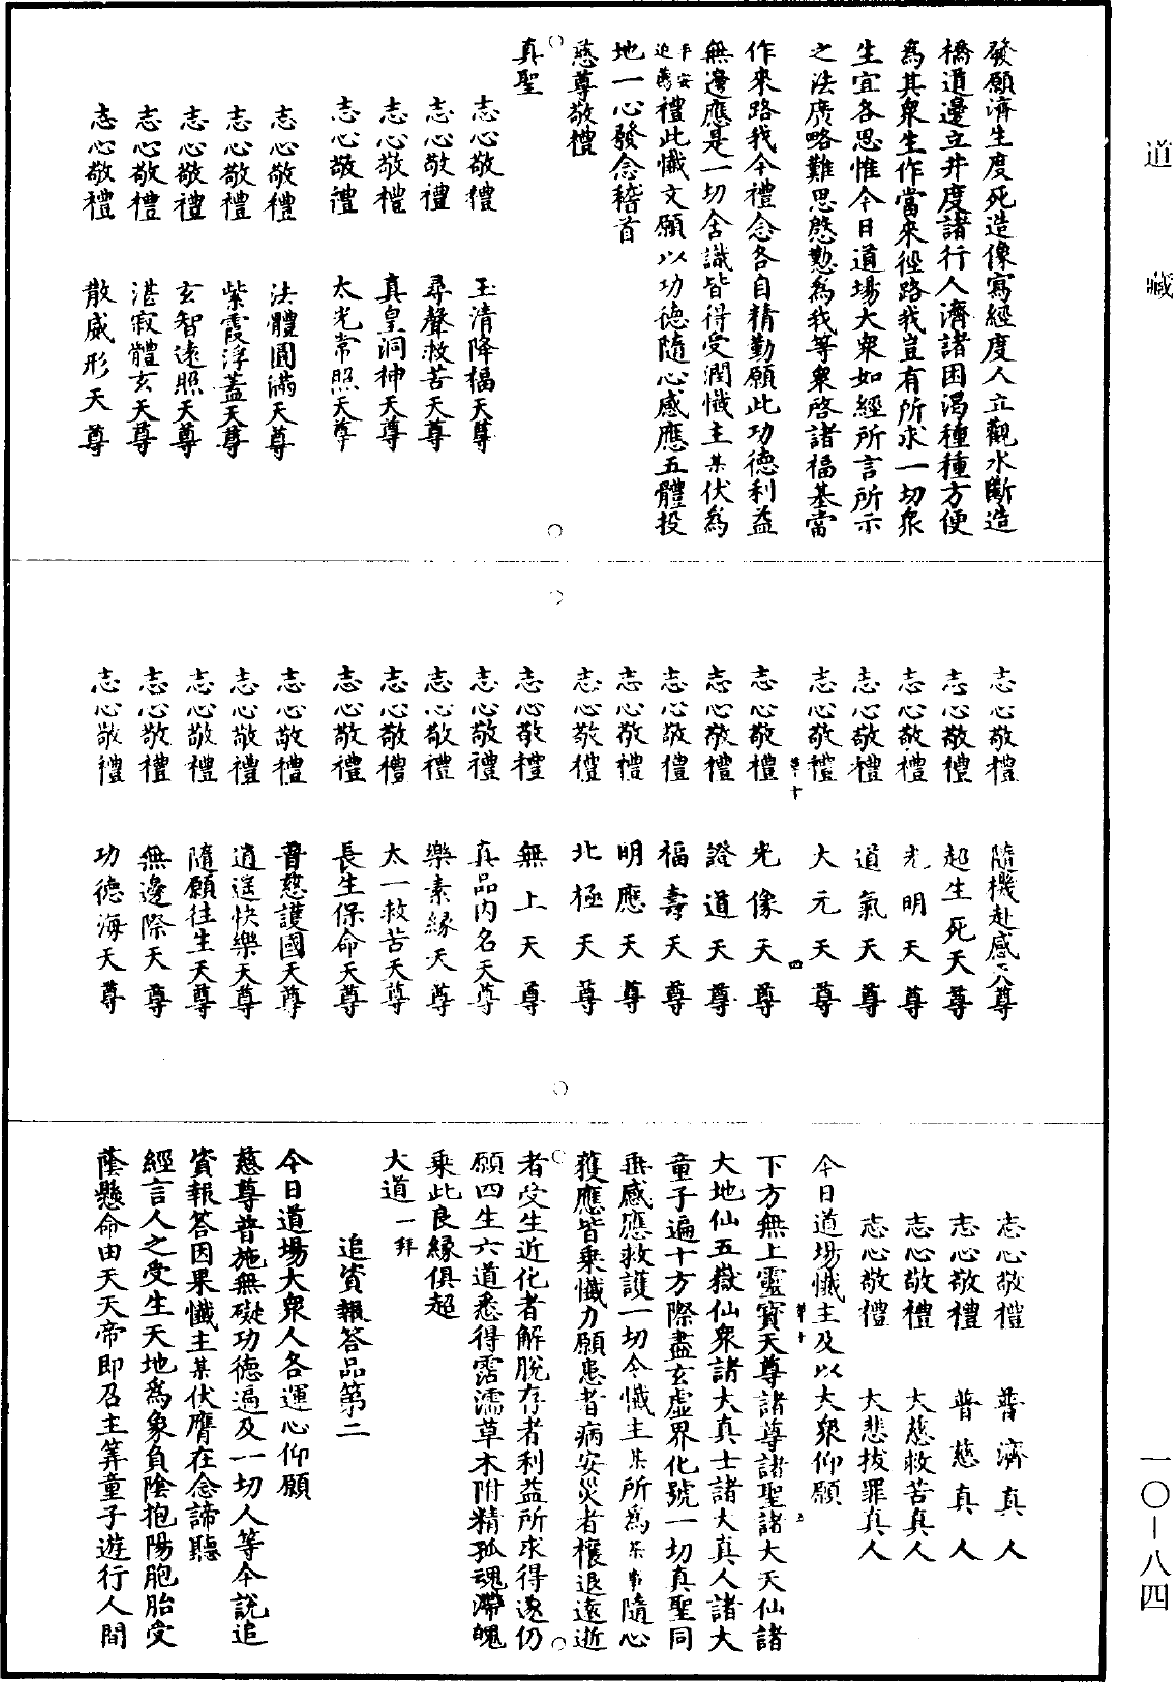 發願濟生度死造像寫經度人立觀水斷造
橋道邊立井度諸行人濟諸困渴種種方便
為其衆生作當來徑路我豈有所求一切衆
生宜各思惟今日道場大衆如經所言所示
之法廣略難思慇懃為我等衆啓諸福基當
作來路我今禮念各自精勤願此功德利益
無邊應是一切含識皆得受潤懺主某伏為
平安追薦禮此懺文願以功德隨心感應五體投
地一心發念稽首
慈尊敬禮
真聖
志心敬禮 玉清降福天尊
志心敬禮 尋聲救苦天尊
志心敬禮 真皇洞神天尊
志心敬禮 太光常照天尊
志心敬禮 法體圓滿天尊
志心敬禮 紫霞浮蓋天尊
志心敬禮 玄智遠照天尊
志心敬禮 湛寂體玄天尊
志心敬禮 散威形天尊
志心敬禮 隨機赴感天尊
志心敬禮 起生死天尊
志心敬禮 光明天尊
志心敬禮 道氣天尊
志心敬禮 大元天尊
志心敬禮 光像天尊
志心敬禮 證道天尊
志心敬禮 福壽天尊
志心敬禮 明應天尊
志心敬禮 北極天尊
志心敬禮 無上天尊
志心敬禮 真品内名天尊
志心敬禮 樂素緣天尊
志心敬禮 太一救苦天尊
志心敬禮 長生保命天尊
志心敬禮 普慈護國天尊
志心敬禮 逍遥快樂天尊
志心敬禮 隨願往生天尊
志心敬禮 無邊際天尊
志心敬禮 功德海天尊
志心敬禮 普濟真人
志心敬禮 普慈真人
志心敬禮 大慈救苦真人
志心敬禮 大悲拔罪真人
今日道場懺主及以大衆仰願
下方無上靈寶天尊諸尊諸聖諸大天仙諸
大地仙五嶽仙衆諸大真士諸大真人諸大
童子遍十方際盡玄虚界化號一切真聖同
垂感應救護一切今懺主某所為某事隨心
獲應皆乘懺力願患者病安災者禳退遠逝
者受生近化者解脱存者利益所求得遂仍
願四生六道悉得霑濡草木附精孤魂滯魄
乘此良緣俱超
大道一拜
追資報答品第二
今日道場大衆人各運心仰願
慈尊普施無礙功德遍及一切人等今説追
資報答因果懺主某伏膺在念諦聽
經言人之受生天地為象負陰抱陽胞胎受
蔭懸命由天天帝即召主筭童子遊行人間
道藏
一〇—八四